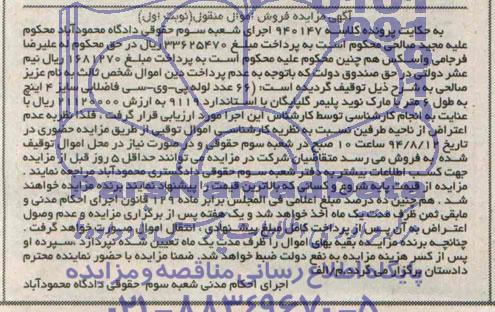 آگهی مزایده فروش اموال منقول(نوبت اول)
به حکایت پرونده کلاسه ۹۴۰۱۴۷ اجرای شعبه سوم حقوقی دادگاه محمودآباد محکوم
علیه مجید صالحی محکوم است به پرداخت مبلغ ۳۳۶۲۵۴۷۰ ریال در حق محکوم له علیرضا
فرجامی و هم چنین محکوم علیه محکوم است به پرداخت مبلغ ۱۶۸۱۲۷۰ ریال نیم
عشر دولتی در حق صندوق دولت که باتوجه به عدم پرداخت دین اموال شخص ثالث به نام عزیز
صالحی به شرح ذیل توقیف گردیده است: (۶۶ عدد لوله پی-وی-سی فاضلابی سایز ۴ اینچ
به طول ۶ متر با مارک نوید پلیمر گلپایگان با استاندارد ۹۱۱۹ به ارزش ریال با
عنایت به انجام کارشناسی توسط کارشناس این اجرا مورد ارزیابی قرار گرفت، فلذا نظربه عدم
اعتراض از ناحیه طرفین نسبت به نظریه کارشناسی اموال توقیفی از طریق مزایده حضوری در
تاریخ ساعت ۱۰ صبح در شعبه سوم حقوقی در صورت نیاز در محل اموال توقیف
شده به فروش می رسد متقاضیان شرکت در مزایده می توانند حداقل ۵ روز قبل از مزایده
جهت کسب اطلاعات بیشتر به دفتر شعبه سوم حقوقی دادگستری محمودآباد مراجعه نمایند.
مزایده از قیمت پایه شروع و کسانی که بالاترین قیمت را پیشنهاد نمایند برنده مزایده خواهند
شد. هم چنین ده درصد مبلغ اعلامی فی المجلس برابر ماده ۱۲۹ قانون اجرای احکام مدنی و
مابقی ثمن ظرف مدت یک ماه اخذ خواهد شد و یک هفته پس از برگزاری مزایده و عدم وصول
اعتراض به آن پس از پرداخت کامل مبلغ پیشنهادی انتقال اموال صورت خواهد گرفت.
چنانچه برنده مزایده بقیه بهای اموال را ظرف مدت یک ماه تعیین شده نپردازد، سپرده او
پس از کسر هزینه مزایده به نفع دولت ضبط خواهد شد. ضمنا مزایده با حضور نماینده محترم
دادستان برگزار می گردد.م/الف
اجرای احکام مدنی شعبه سوم حقوقی دادگاه محمودآباد
پایگاه اطلاع رسانی مناقصه و مزایده
۰۲۱-۸۸۳۴۹۶۷۰-۵